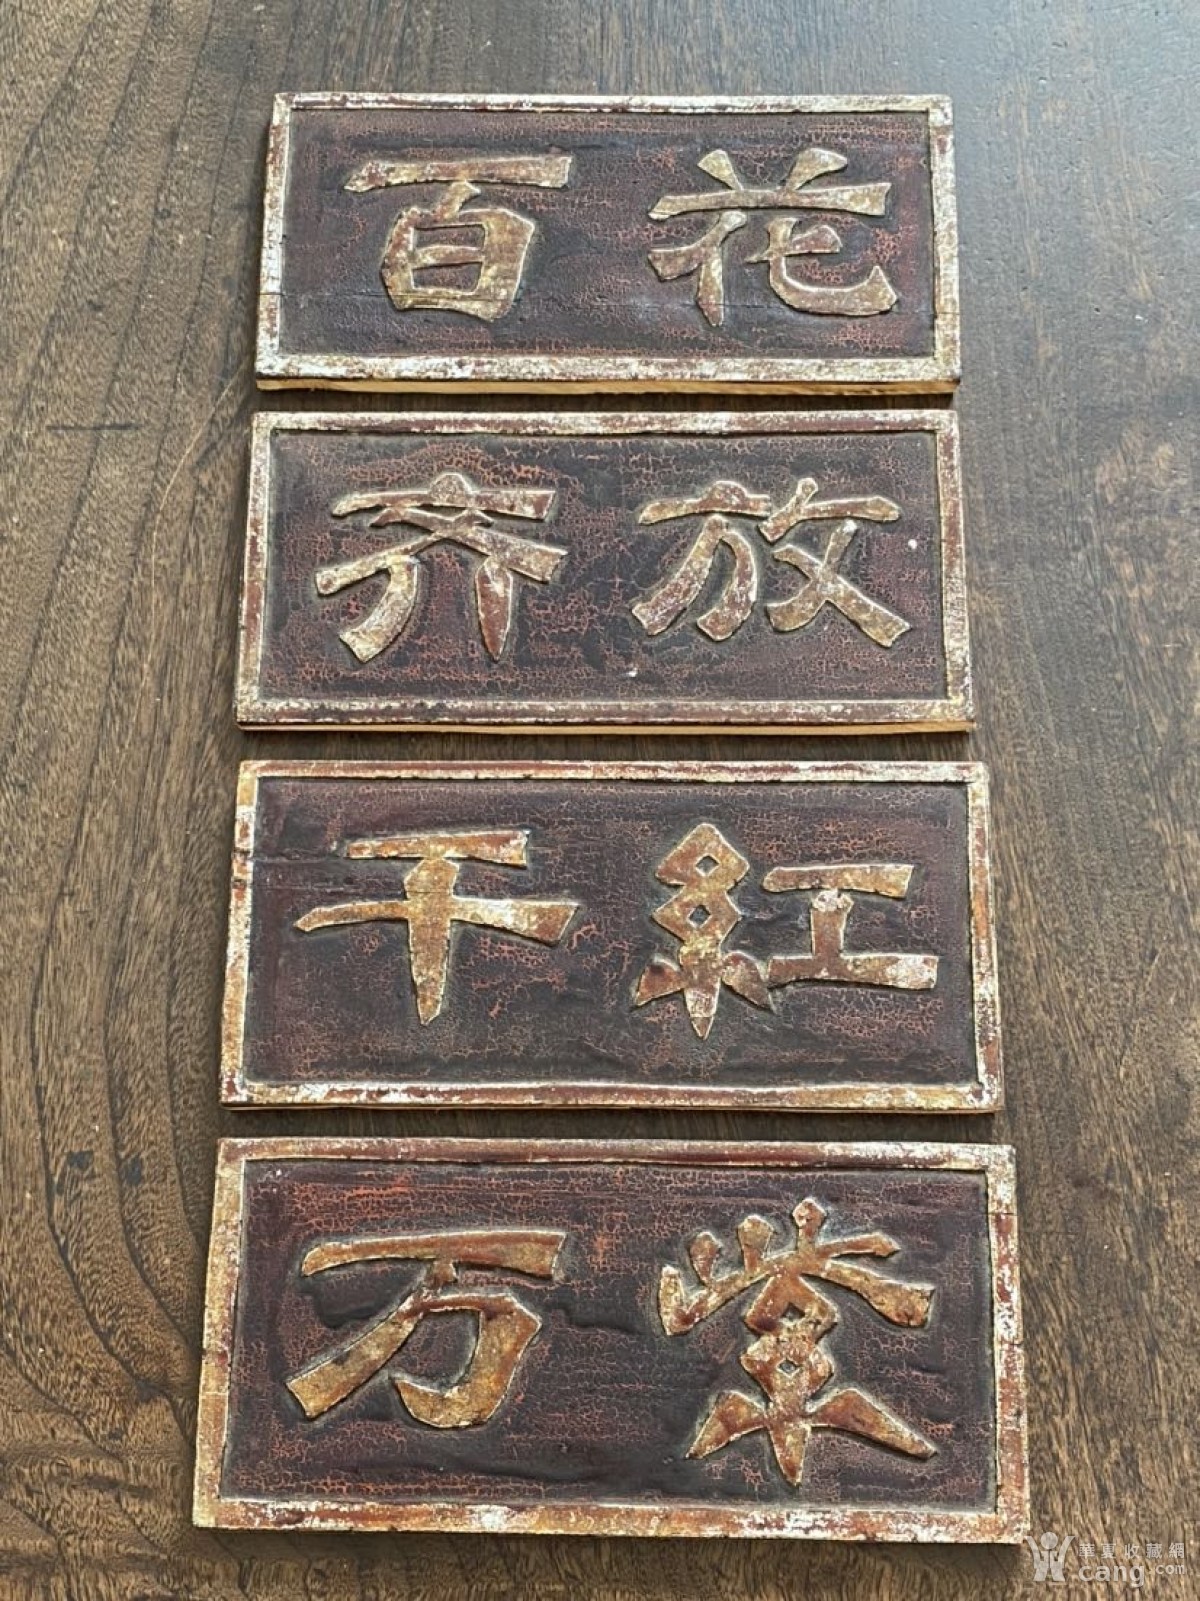 百花
齐放
千紅
万紫
華夏收藏網
cang.com